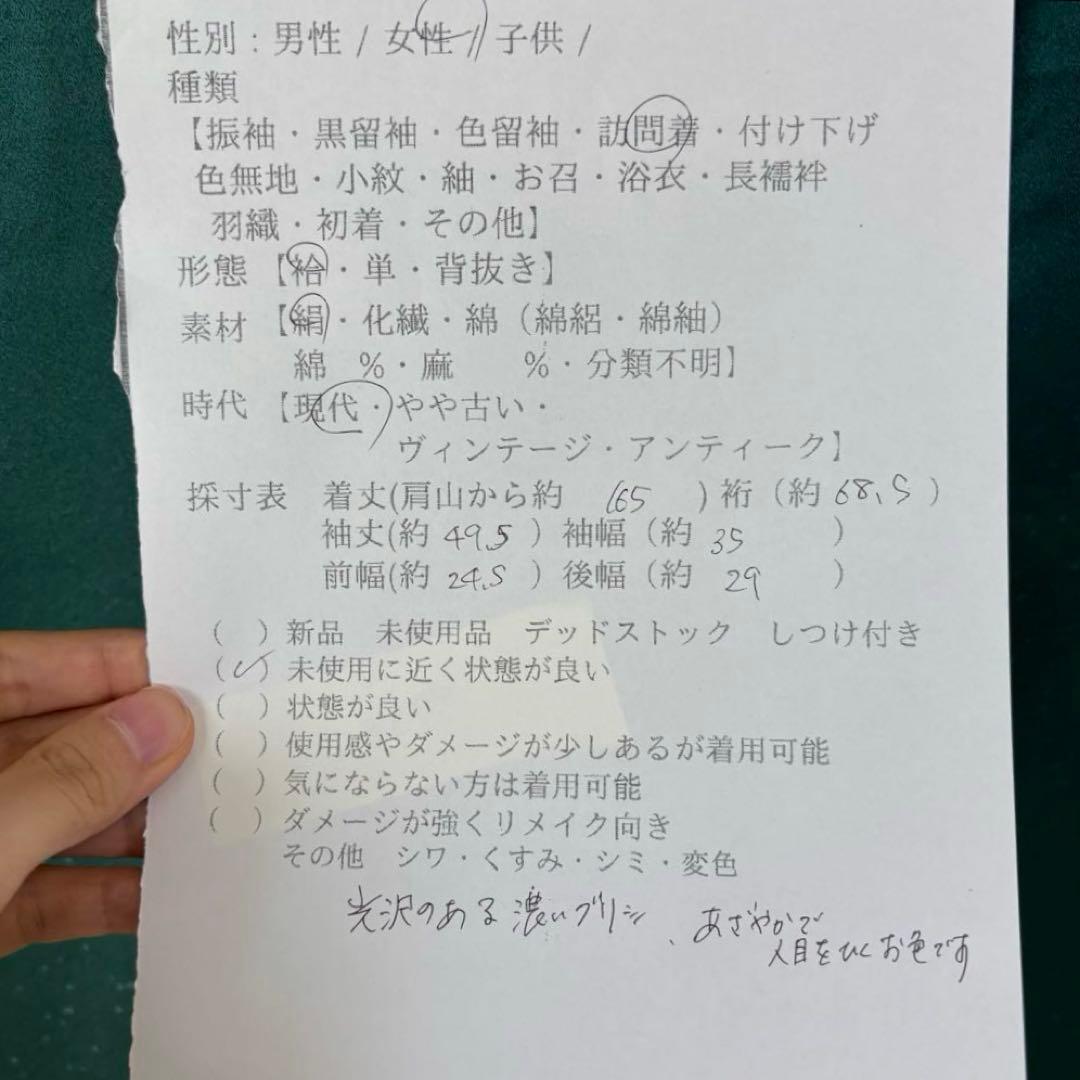 性別：男性 / 女性 / 子供 /
種類
【振袖・黒留袖・色留袖・訪問着・付け下げ
色無地・小紋・紬・お召・浴衣・長襦袢
羽織・初着・その他】
形態【袷・単・背抜き】
素材【絹・化繊・綿（綿絽・綿紬）
綿 %・麻 %・分類不明】
時代【現代・やや古い・
ヴィンテージ・アンティーク】
採寸表 着丈(肩山から約 165 ) 裄（約 68.5 ）
袖丈(約 49.5 ）袖幅（約 35 ）
前幅(約 24.5 ）後幅（約 29 ）
（ ）新品 未使用品 デッドストック しつけ付き
（✓）未使用に近く状態が良い
（ ）状態が良い
（ ）使用感やダメージが少しあるが着用可能
（ ）気にならない方は着用可能
（ ）ダメージが強くリメイク向き
その他 シワ・くすみ・シミ・変色
光沢のある濃い 、あざやかで
人目をひくお色です